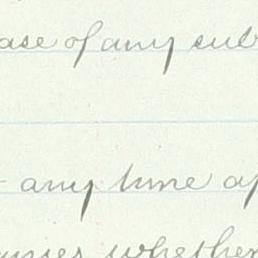 ase of any sub
any time ap
whether